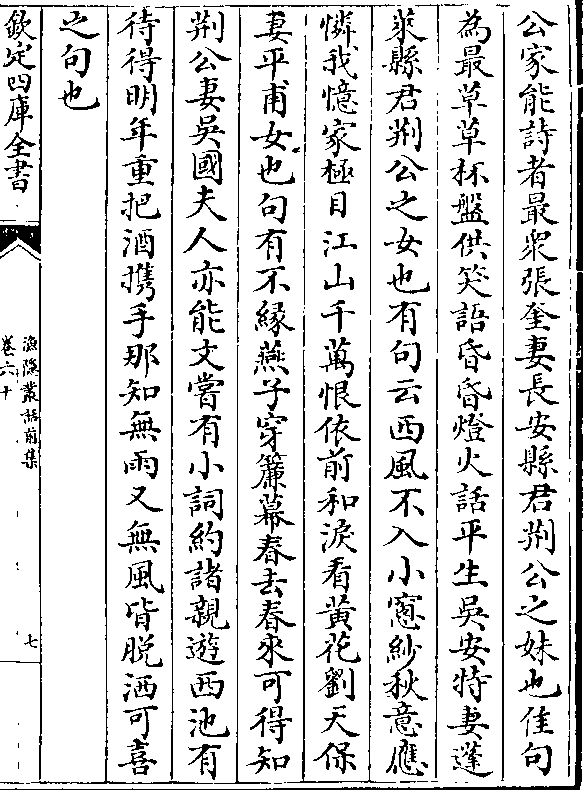 公家能詩者最衆張奎妻長安縣君荆公之妹也佳句
為最草草杯盤供笑語昏昏燈火話平生吳安持妻蓬
萊縣君荆公之女也有句云西風不入小窻紗秋意應
憐我憶家極目江山千萬恨依前和淚看黄花劉天保
妻平甫女也句有不緣燕子穿簾幕春去春來可得知
荆公妻吳國夫人亦能文嘗有小詞約諸親遊西池有
待得明年重把酒携手那知無雨又無風皆脱洒可喜
之句也
欽定四庫全書
漁隱叢話前集
卷六十
七